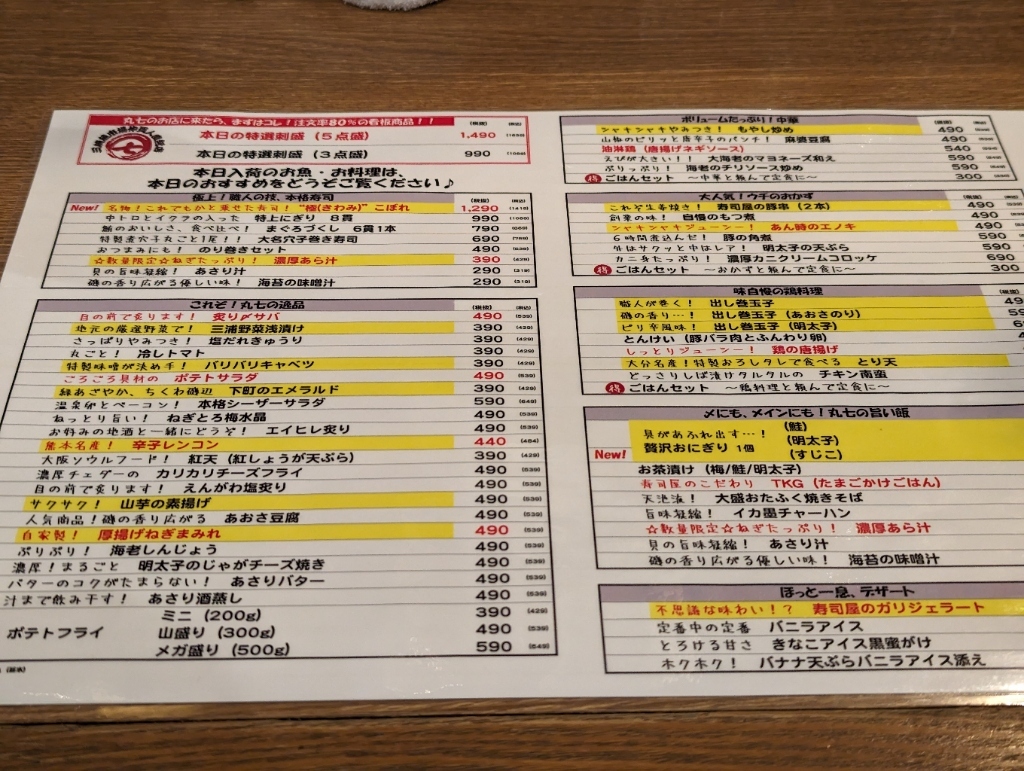 丸七のお店に来たら、まずはコレ！注文率80%の看板商品！！ (税抜) (税込)
本日の特選刺盛（5点盛） 1,490
本日の特選刺盛（3点盛） 990
本日入荷のお魚・お料理は、
本日のおすすめをどうぞご覧ください♪
極上！職人の技、本格寿司 (税抜) (税込)
New! 名物！これでもかと乗せた寿司！ "極(きわみ)" こぼれ 1,290
中トロとイクラの入った 特上にぎり 8貫 990
鮪のおいしさ、食べ比べ！ まぐろづくし 6貫1本 790
特製煮穴子丸ごと1尾！！ 大名穴子巻き寿司 690
おつまみにも！ のり巻きセット 490
☆数量限定☆ねぎたっぷり！ 濃厚あら汁 390
貝の旨味凝縮！ あさり汁 290
磯の香り広がる優しい味！ 海苔の味噌汁 290
これぞ！丸七の逸品 (税抜) (税込)
目の前で炙ります！ 炙り〆サバ 490 (539)
地元の厳選野菜で！ 三浦野菜浅漬け 390 (429)
さっぱりやみつき！ 塩だれきゅうり 390 (429)
丸ごと！ 冷しトマト 390 (429)
特製味噌が決め手！ バリバリキャベツ 390 (429)
ごろごろ具材の ポテトサラダ 490 (539)
緑あざやか、ちくわ磯辺 下町のエメラルド 390 (429)
温泉卵とベーコン！ 本格シーザーサラダ 590 (649)
ねっとり旨い！ ねぎとろ梅水晶 490 (539)
お好みの地酒と一緒にどうぞ！ エイヒレ炙り 490 (539)
熊本名産！ 辛子レンコン 440 (484)
大阪ソウルフード！ 紅天（紅しょうが天ぷら） 390 (429)
濃厚チェダーの カリカリチーズフライ 490 (539)
目の前で炙ります！ えんがわ塩炙り 490 (539)
サクサク！ 山芋の素揚げ 490 (539)
人気商品！磯の香り広がる あおさ豆腐 490 (539)
自家製！ 厚揚げねぎまみれ 490 (539)
ぷりぷり！ 海老しんじょう 490 (539)
濃厚！まるごと 明太子のじゃがチーズ焼き 490 (539)
バターのコクがたまらない！ あさりバター 490 (539)
汁まで飲み干す！ あさり酒蒸し 490 (539)
ミニ（200g） 390 (429)
ポテトフライ 山盛り（300g） 490 (539)
メガ盛り（500g） 590 (649)
ボリュームたっぷり！中華 (税抜)
シャキシャキやみつき！ もやし炒め 490
山椒のピリッと唐辛子のパンチ！ 麻婆豆腐 490
油淋鶏（唐揚げネギソース） 540
えびが大きい！！ 大海老のマヨネーズ和え 590
ぷりっぷり！ 海老のチリソース炒め 590
得 ごはんセット ～中華と頼んで定食に～ 300
大人気！ウチのおかず (税抜)
これぞ生姜焼き！ 寿司屋の豚串（2本） 490
創業の味！ 自慢のもつ煮 490
シャキシャキジューシー！ あん時のエノキ 490
6時間煮込んだ！ 豚の角煮 590
外はサクッと中はレア！ 明太子の天ぷら 590
カニ身たっぷり！ 濃厚カニクリームコロッケ 690
得 ごはんセット ～おかずと頼んで定食に～ 300
味自慢の鶏料理 (税抜)
職人が巻く！ 出し巻玉子
磯の香り…！ 出し巻玉子（あおさのり）
ピリ辛風味！ 出し巻玉子（明太子）
とんけい（豚バラ肉とふんわり卵）
しっとりジューシー！ 鶏の唐揚げ
大分名産！特製おろしタレで食べる とり天
どっさりしば漬けタルタルの チキン南蛮
得 ごはんセット ～鶏料理と頼んで定食に～
〆にも、メインにも！丸七の旨い飯
具があふれ出す…！ （鮭）
New! 贅沢おにぎり 1個 （明太子）
（すじこ）
お茶漬け（梅/鮭/明太子）
寿司屋のこだわり TKG（たまごかけごはん）
天地返！ 大盛おたふく焼きそば
旨味凝縮！ イカ墨チャーハン
☆数量限定☆ねぎたっぷり！ 濃厚あら汁
貝の旨味凝縮！ あさり汁
磯の香り広がる優しい味！ 海苔の味噌汁
ほっと一息、デザート
不思議な味わい！？ 寿司屋のガリジェラート
定番中の定番 バニラアイス
とろける甘さ きなこアイス黒蜜がけ
ホクホク！ バナナ天ぷらバニラアイス添え